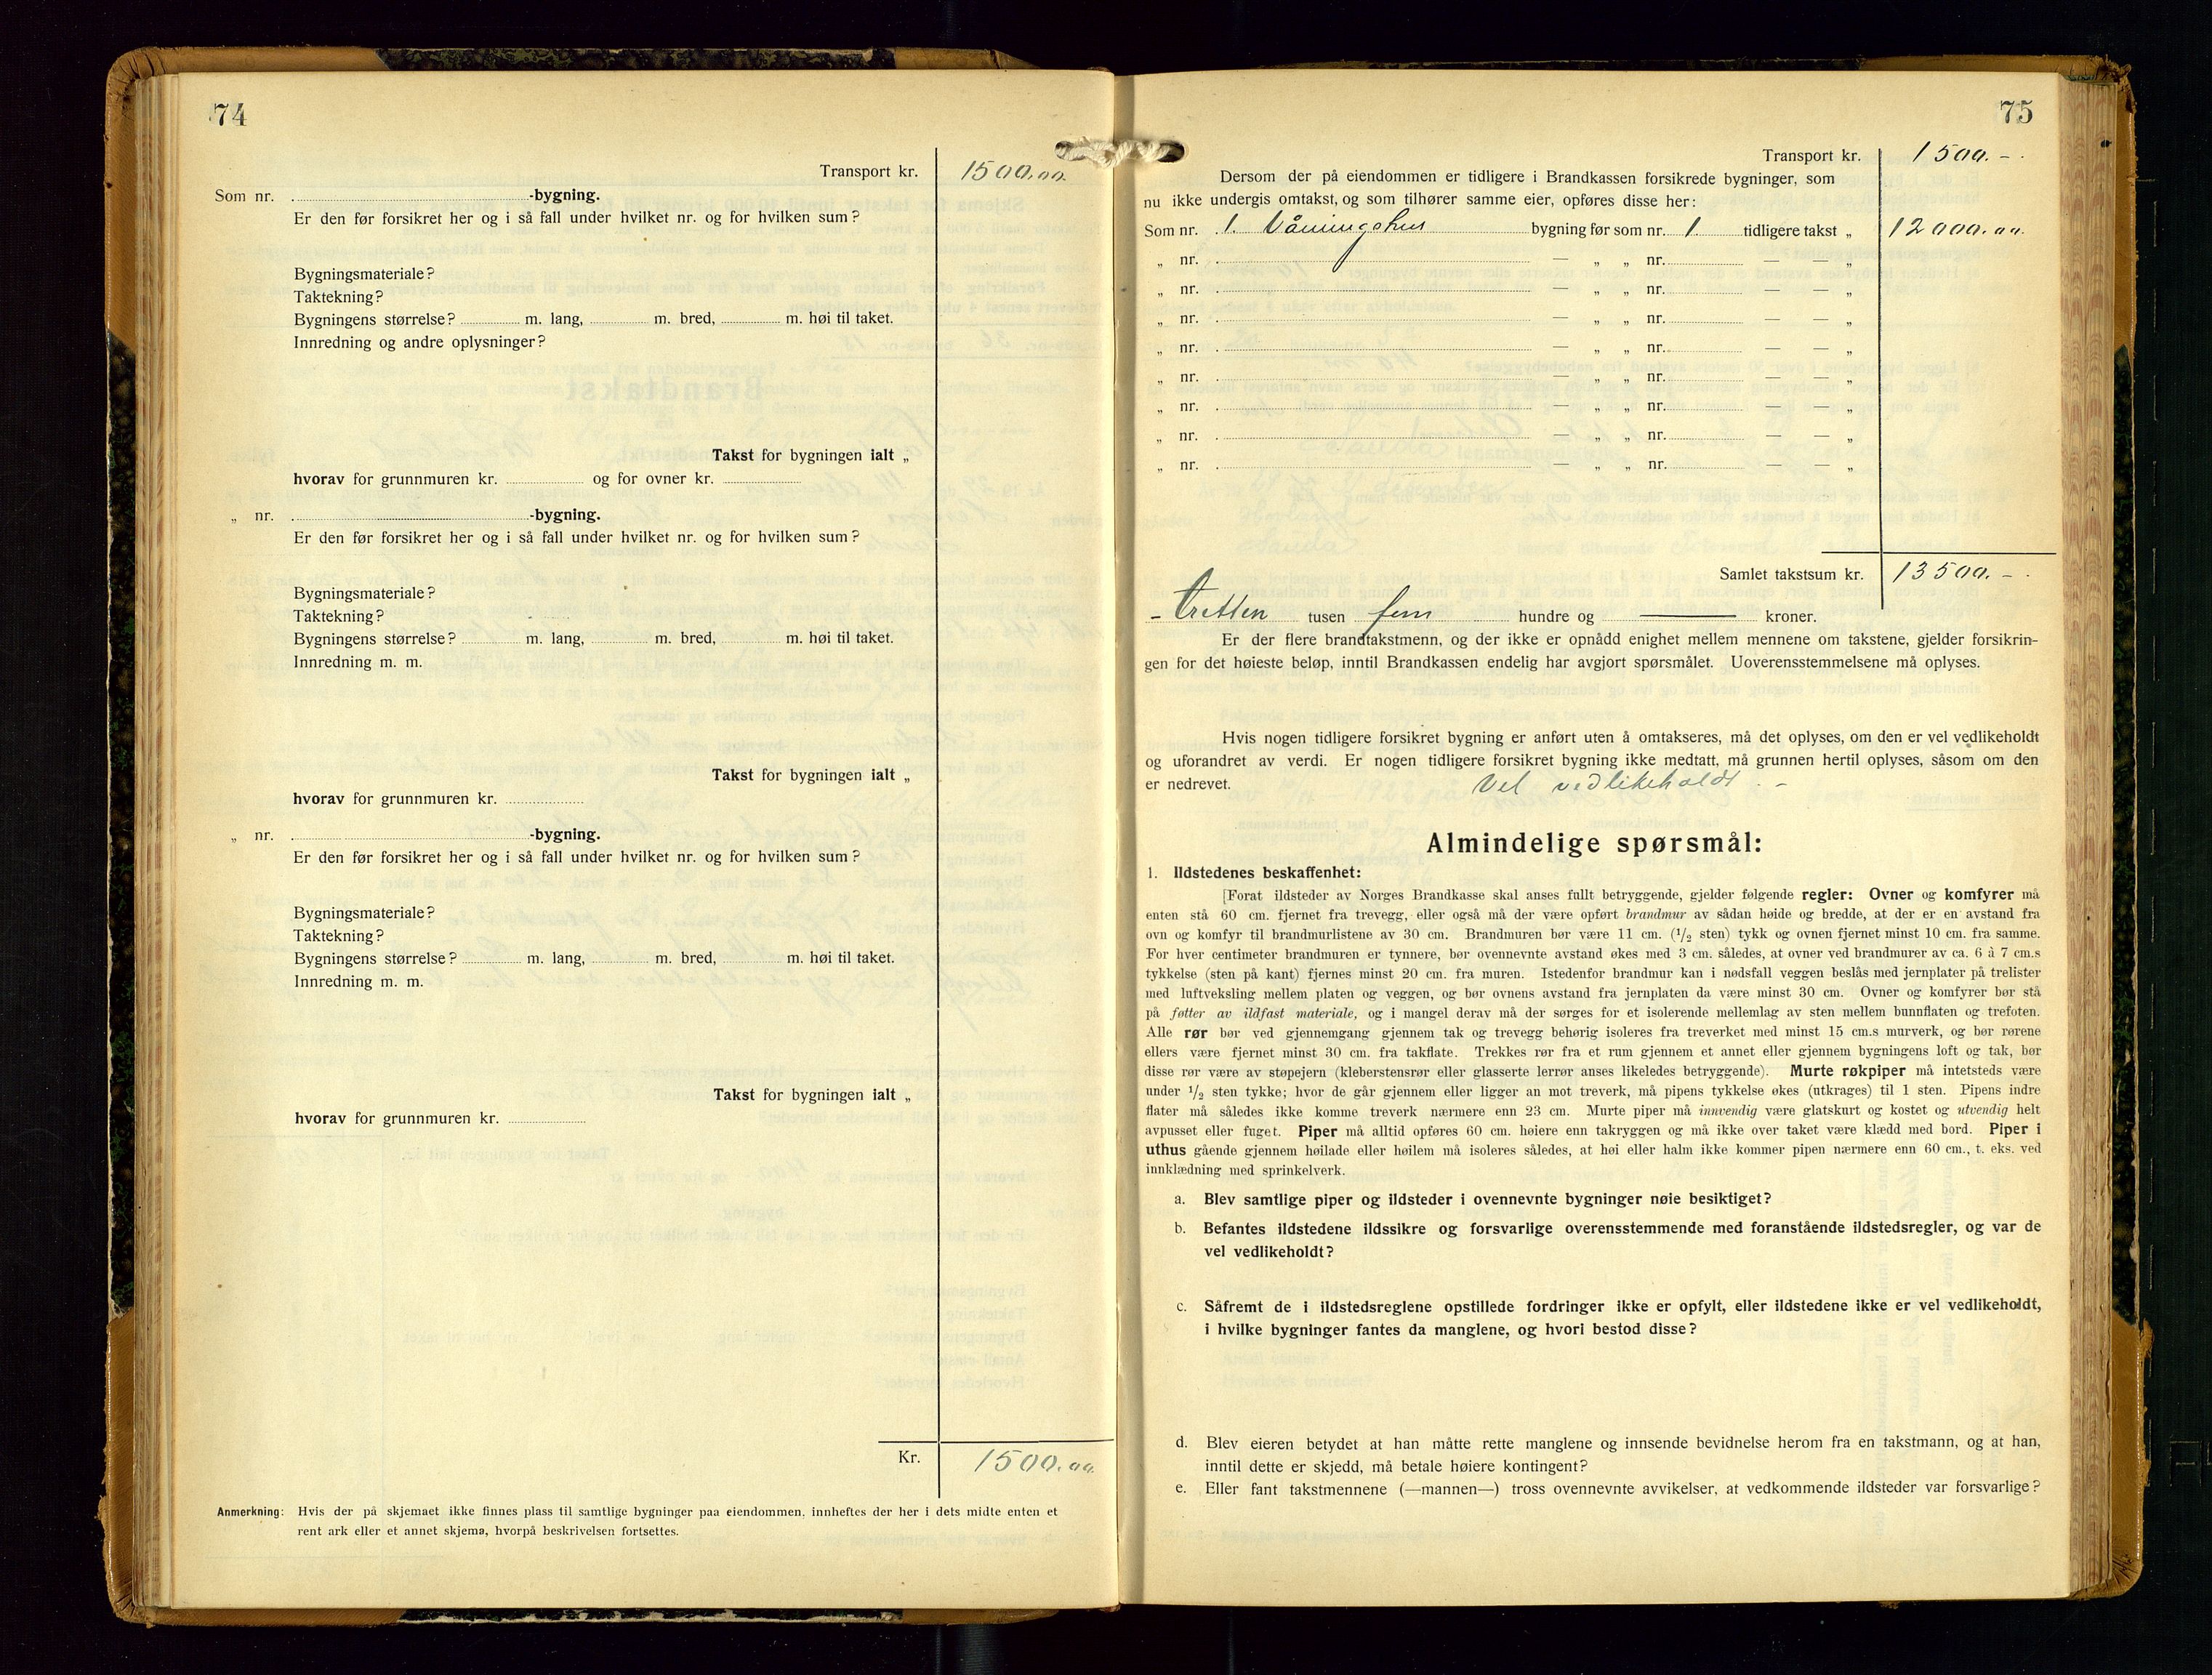 74
Transport kr. 1500.00.
Som nr. -bygning.
Er den før forsikret her og i så fall under hvilket nr. og for hvilken sum?
Bygningsmateriale?
Taktekning?
Bygningens størrelse? m. lang, m. bred, m. høi til taket.
Innredning og andre oplysninger?
Takst for bygningen ialt „
hvorav for grunnmuren kr. og for ovner kr.
„ nr. -bygning.
Er den før forsikret her og i så fall under hvilket nr. og for hvilken sum?
Bygningsmateriale?
Taktekning?
Bygningens størrelse? m. lang, m. bred, m. høi til taket.
Innredning m. m.
Takst for bygningen ialt „
hvorav for grunnmuren kr.
„ nr. -bygning.
Er den før forsikret her og i så fall under hvilket nr. og for hvilken sum?
Bygningsmateriale?
Taktekning?
Bygningens størrelse? m. lang, m. bred, m. høi til taket.
Innredning m. m.
Takst for bygningen ialt „
hvorav for grunnmuren kr.
Kr. 1500.00.
Anmerkning: Hvis der på skjemaet ikke finnes plass til samtlige bygninger paa eiendommen, innheftes der her i dets midte enten et
rent ark eller et annet skjema, hvorpå beskrivelsen fortsettes.
75
Transport kr. 1500.-.
Dersom der på eiendommen er tidligere i Brandkassen forsikrede bygninger, som
nu ikke undergis omtakst, og som tilhører samme eier, opføres disse her:
Som nr. 1. Våningshus bygning før som nr. 1. tidligere takst „ 12000.00.
„ nr. — „ „ nr. — — „
„ nr. — „ „ nr. — — „
„ nr. — „ „ nr. — — „
„ nr. — „ „ nr. — — „
„ nr. — „ „ nr. — — „
„ nr. — „ „ nr. — — „
„ nr. — „ „ nr. — — „
„ nr. — „ „ nr. — — „
Samlet takstsum kr. 13500.-.
- tretten tusen fem hundre og — kroner.
Er der flere brandtakstmenn, og der ikke er opnådd enighet mellem mennene om takstene, gjelder forsikrin-
gen for det høieste beløp, inntil Brandkassen endelig har avgjort spørsmålet. Uoverensstemmelsene må oplyses.
Hvis nogen tidligere forsikret bygning er anført uten å omtakseres, må det oplyses, om den er vel vedlikeholdt
og uforandret av verdi. Er nogen tidligere forsikret bygning ikke medtatt, må grunnen hertil oplyses, såsom om den
er nedrevet. Vel vedlikeholdt. -
Almindelige spørsmål:
1. Ildstedenes beskaffenhet:
[Forat ildsteder av Norges Brandkasse skal anses fullt betryggende, gjelder følgende regler: Ovner og komfyrer må
enten stå 60 cm. fjernet fra trevegg, eller også må der være opført brandmur av sådan høide og bredde, at der er en avstand fra
ovn og komfyr til brandmurlistene av 30 cm. Brandmuren bør være 11 cm. (1/2 sten) tykk og ovnen fjernet minst 10 cm. fra samme.
For hver centimeter brandmuren er tynnere, bør ovennevnte avstand økes med 3 cm. således, at ovner ved brandmurer av ca. 6 à 7 cm.s
tykkelse (sten på kant) fjernes minst 20 cm. fra muren. Istedenfor brandmur kan i nødsfall veggen beslås med jernplater på trelister
med luftveksling mellem platen og veggen, og bør ovnens avstand fra jernplaten da være minst 30 cm. Ovner og komfyrer bør stå
på føtter av ildfast materiale, og i mangel derav må der sørges for et isolerende mellemlag av sten mellem bunnflaten og trefoten.
Alle rør bør ved gjennemgang gjennem tak og trevegg behørig isoleres fra treverket med minst 15 cm.s murverk, og bør rørene
ellers være fjernet minst 30 cm. fra takflate. Trekkes rør fra et rum gjennem et annet eller gjennem bygningens loft og tak, bør
disse rør være av støpejern (kleberstensrør eller glasserte lerrør anses likeledes betryggende). Murte røkpiper må intetsteds være
under 1/2 sten tykke; hvor de går gjennem eller ligger an mot treverk, må pipens tykkelse økes (utkrages) til 1 sten. Pipens indre
flater må således ikke komme treverk nærmere enn 23 cm. Murte piper må innvendig være glatskurt og kostet og utvendig helt
avpusset eller fuget. Piper må alltid opføres 60 cm. høiere enn takryggen og må ikke over taket være klædd med bord. Piper i
uthus gående gjennem høilade eller høilem må isoleres således, at høi eller halm ikke kommer pipen nærmere enn 60 cm., t. eks. ved
innklædning med sprinkelverk.
a. Blev samtlige piper og ildsteder i ovennevnte bygninger nøie besiktiget?
b. Befantes ildstedene ildssikre og forsvarlige overensstemmende med foranstående ildstedsregler, og var de
vel vedlikeholdt?
c. Såfremt de i ildstedsreglene opstillede fordringer ikke er opfylt, eller ildstedene ikke er vel vedlikeholdt,
i hvilke bygninger fantes da manglene, og hvori bestod disse?
d. Blev eieren betydet at han måtte rette manglene og innsende bevidnelse herom fra en takstmann, og at han,
inntil dette er skjedd, må betale høiere kontingent?
e. Eller fant takstmennene (—mannen—) tross ovennevnte avvikelser, at vedkommende ildsteder var forsvarlige?